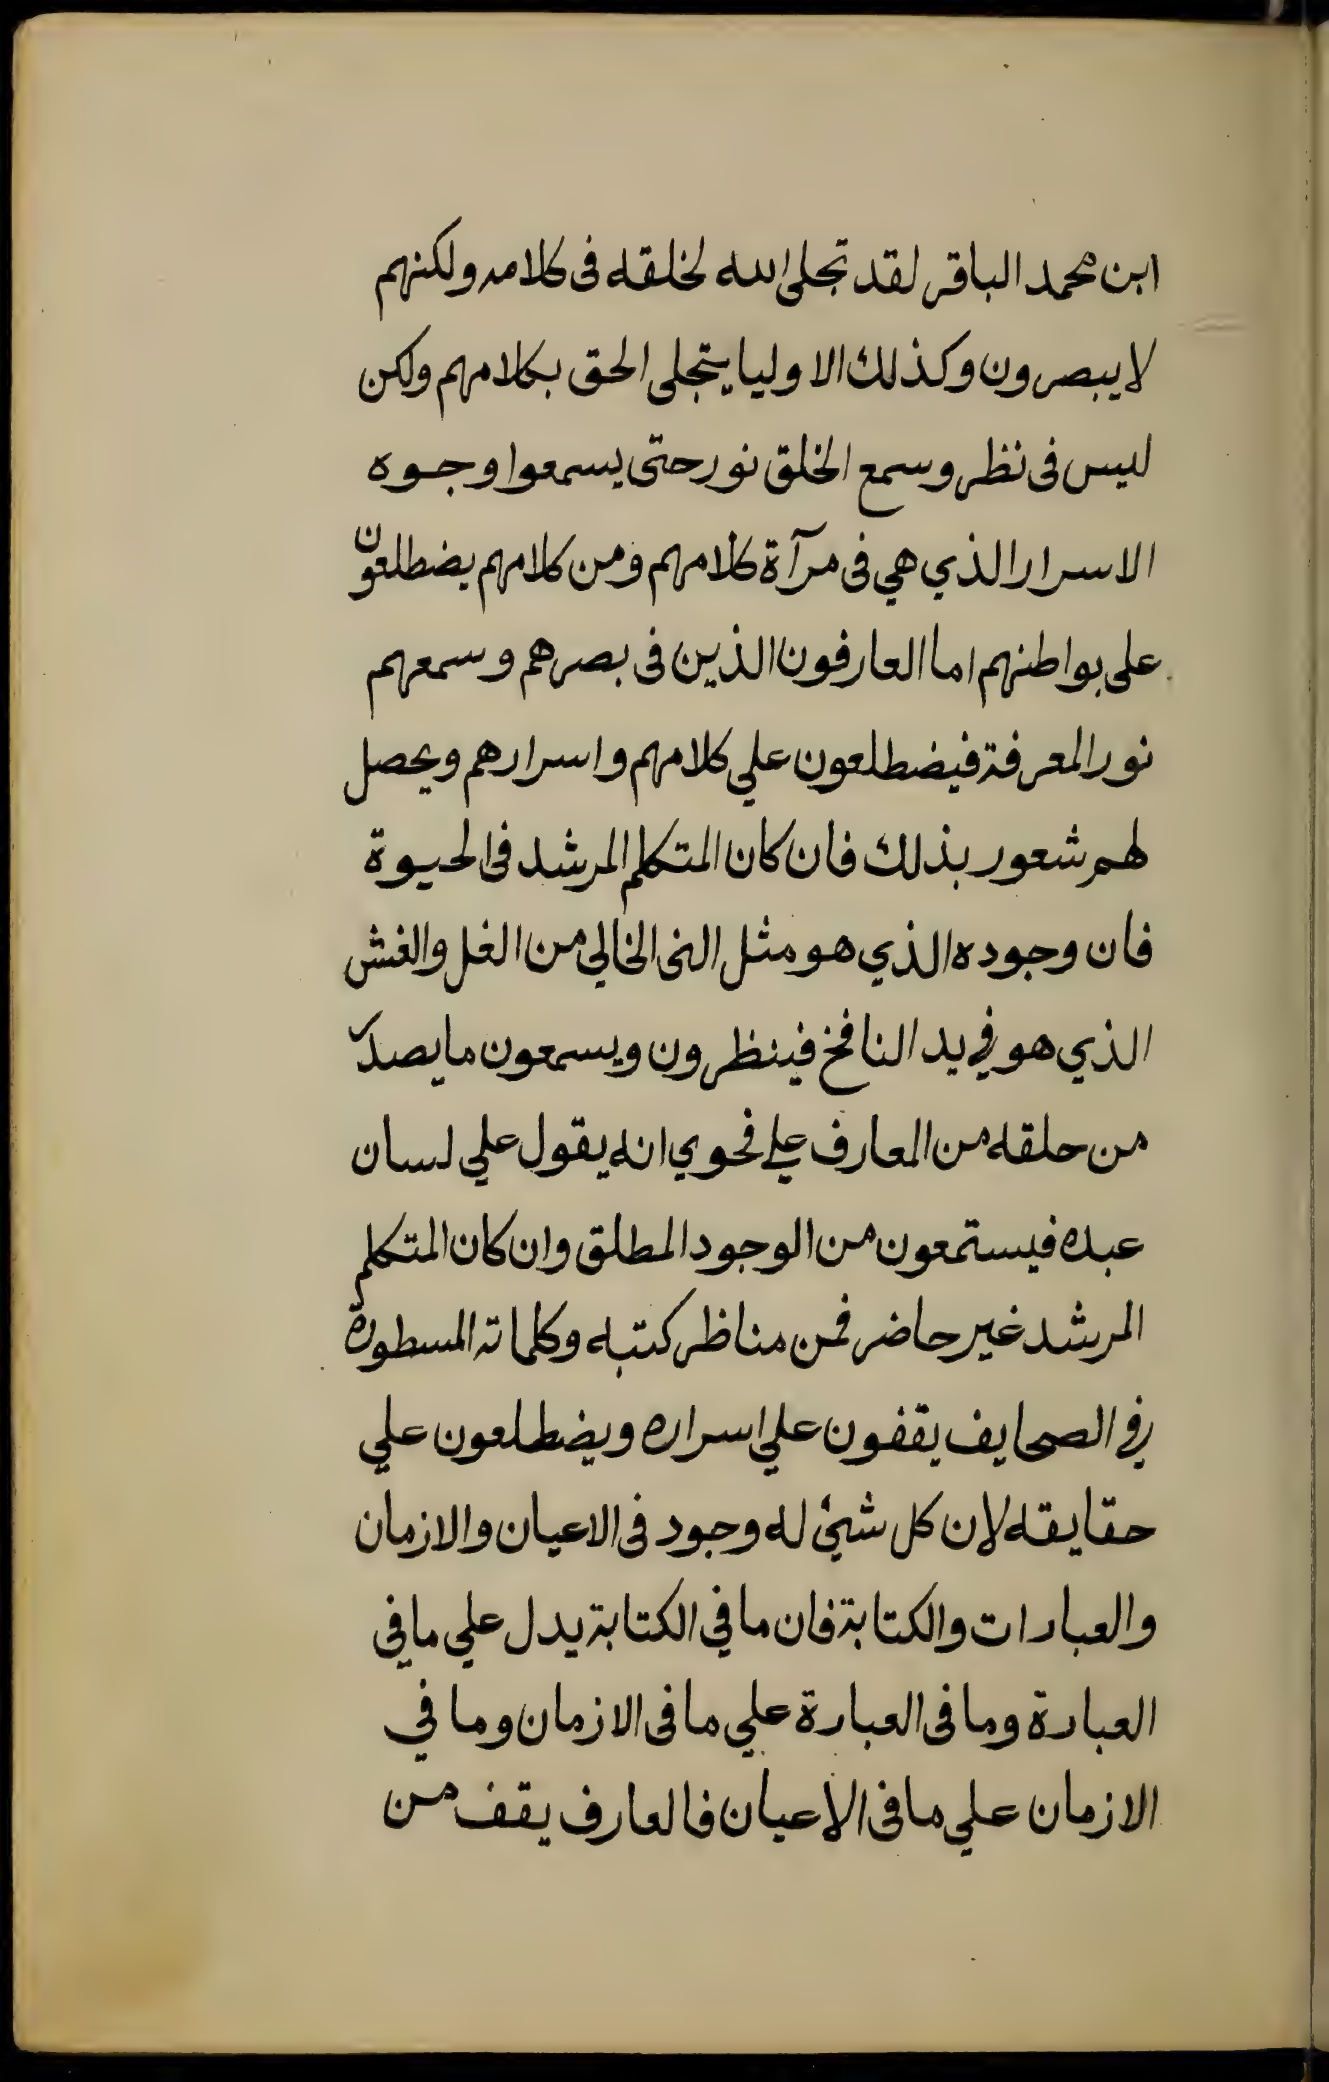 ابن محمد الباقر لقد تجلى الله لخلقه فى كلامه ولكنهم
لا يبصرون وكذلك الاوليا يتجلى الحق بكلامهم ولكن
ليس فى نظر وسمع الخلق نور حتى يسمعوا وجوه
الاسرار الذي هي فى مرآة كلامهم ومن كلامهم يضطلعون
على بواطنهم اما العارفون الذين فى بصرهم وسمعهم
نور المعرفة فيضطلعون علي كلامهم واسرارهم ويحصل
لهم شعور بذلك فان كان المتكلم المرشد فى الحيوة
فان وجوده الذي هو مثل النى الخالي من الغل والغش
الذي هو في يد النافخ فينظرون ويسمعون ما يصدر
من حلقه من المعارف علي فحوي انه يقول علي لسان
عبده فيستمعون من الوجود المطلق وان كان المتكلم
المرشد غير حاضر فمن مناظر كتبه وكلماته المسطورة
في الصحايف يقفون علي اسراره ويضطلعون علي
حقايقه لان كل شيئ له وجود فى الاعيان والازمان
والعبارات والكتابة فان ما في الكتابة يدل علي ما فى
العبارة وما فى العبارة علي ما فى الازمان وما في
الازمان علي ما فى الاعيان فالعارف يقف من